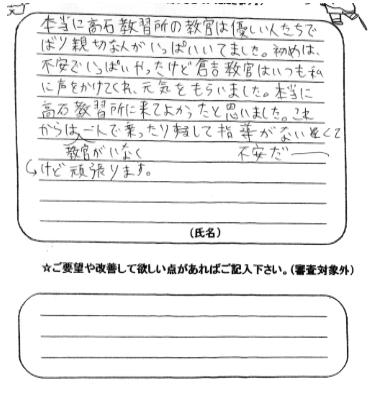 本当に高石教習所の教官は優しい人たちで
ばり親切な人がいっぱいいてました。初めは、
不安でいっぱいやったけど倉吉教官はいつも私
に声をかけてくれ、元気をもらいました。本当に
高石教習所に来てよかったと思いました。これ
からは一人で乗ったり転して指導がない
教官がいなく
不安だ
けど頑張ります。
(氏名)
☆ご要望や改善して欲しい点があればご記入下さい。(審査対象外)